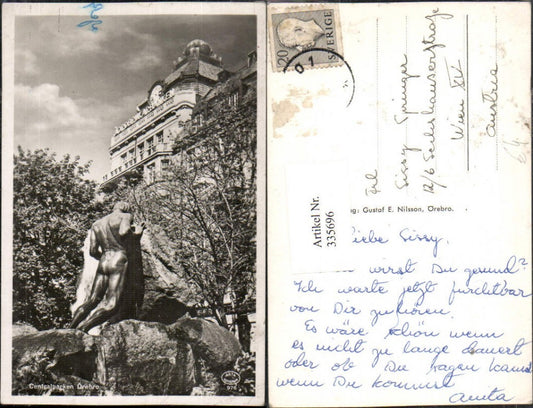 Centralparken Örebro
974
20
SVERIGE
Frl
Sissy Springer
12/6 Sechshauserstraße
Wien XV
Austria
64
Artikel Nr.
335696
ig: Gustaf E. Nilsson, Örebro.
Liebe Sissy,
wirst Du gesund?
Ich warte jetzt furchtbar
von Dir zu hören.
Es wäre schön wenn
es nicht zu lange dauert
oder ob Du sagen kannst
wenn Du kommst
Anita